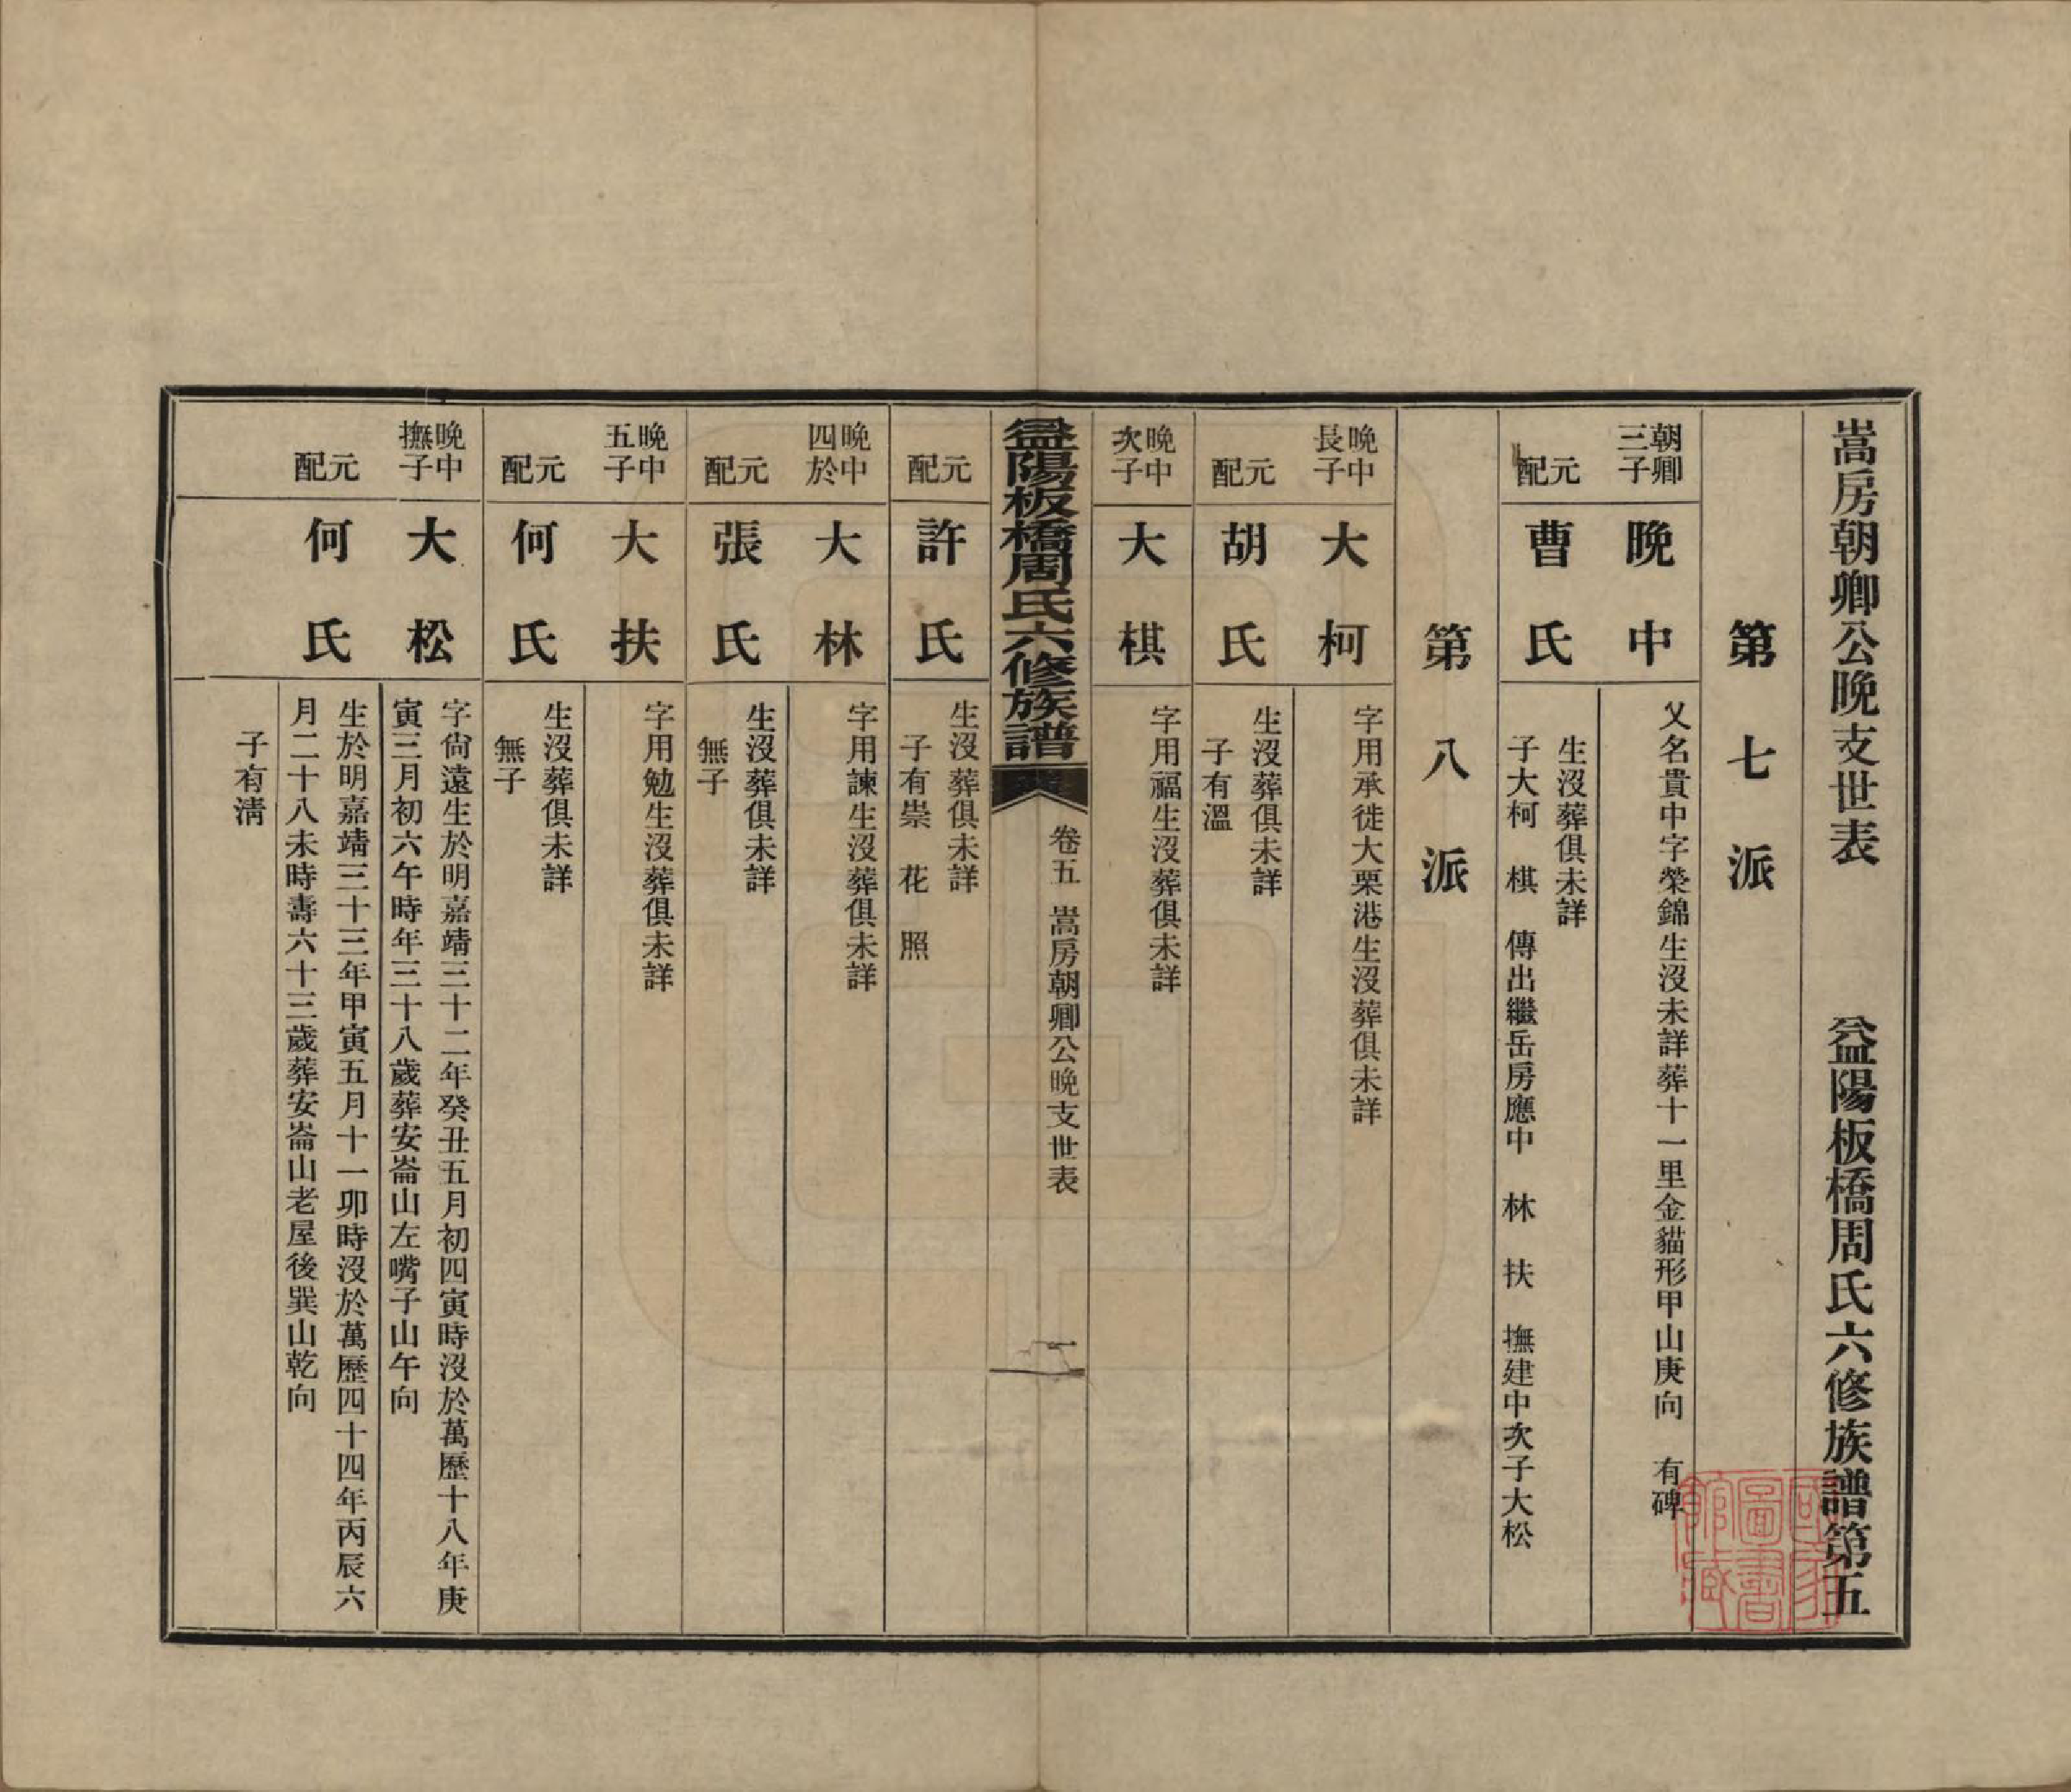 嵩房朝卿公晚支世表　益陽板橋周氏六修族譜第五
第七派
朝卿三子
晚中
乂名貴中字榮錦生沒未詳葬十一里金貓形甲山庚向　有碑
元配
曹氏
生沒葬俱未詳
子大柯　棋　傳出繼岳房應中　林　扶　撫建中次子大松
第八派
晚中長子
大柯
字用承徙大栗港生沒葬俱未詳
元配
胡氏
生沒葬俱未詳
子有溫
晚中次子
大棋
字用福生沒葬俱未詳
益陽板橋周氏六修族譜
卷五　嵩房朝卿公晚支世表
一
元配
許氏
生沒葬俱未詳
子有崇　花　照
晚中四於
大林
字用諫生沒葬俱未詳
元配
張氏
生沒葬俱未詳
無子
晚中五子
大扶
字用勉生沒葬俱未詳
元配
何氏
生沒葬俱未詳
無子
晚中撫子
大松
字尙遠生於明嘉靖三十二年癸丑五月初四寅時沒於萬歷十八年庚
寅三月初六午時年三十八歲葬安崙山左嘴子山午向
元配
何氏
生於明嘉靖三十三年甲寅五月十一卯時沒於萬歷四十四年丙辰六
月二十八未時壽六十三歲葬安崙山老屋後巽山乾向
子有淸
國家圖書館藏